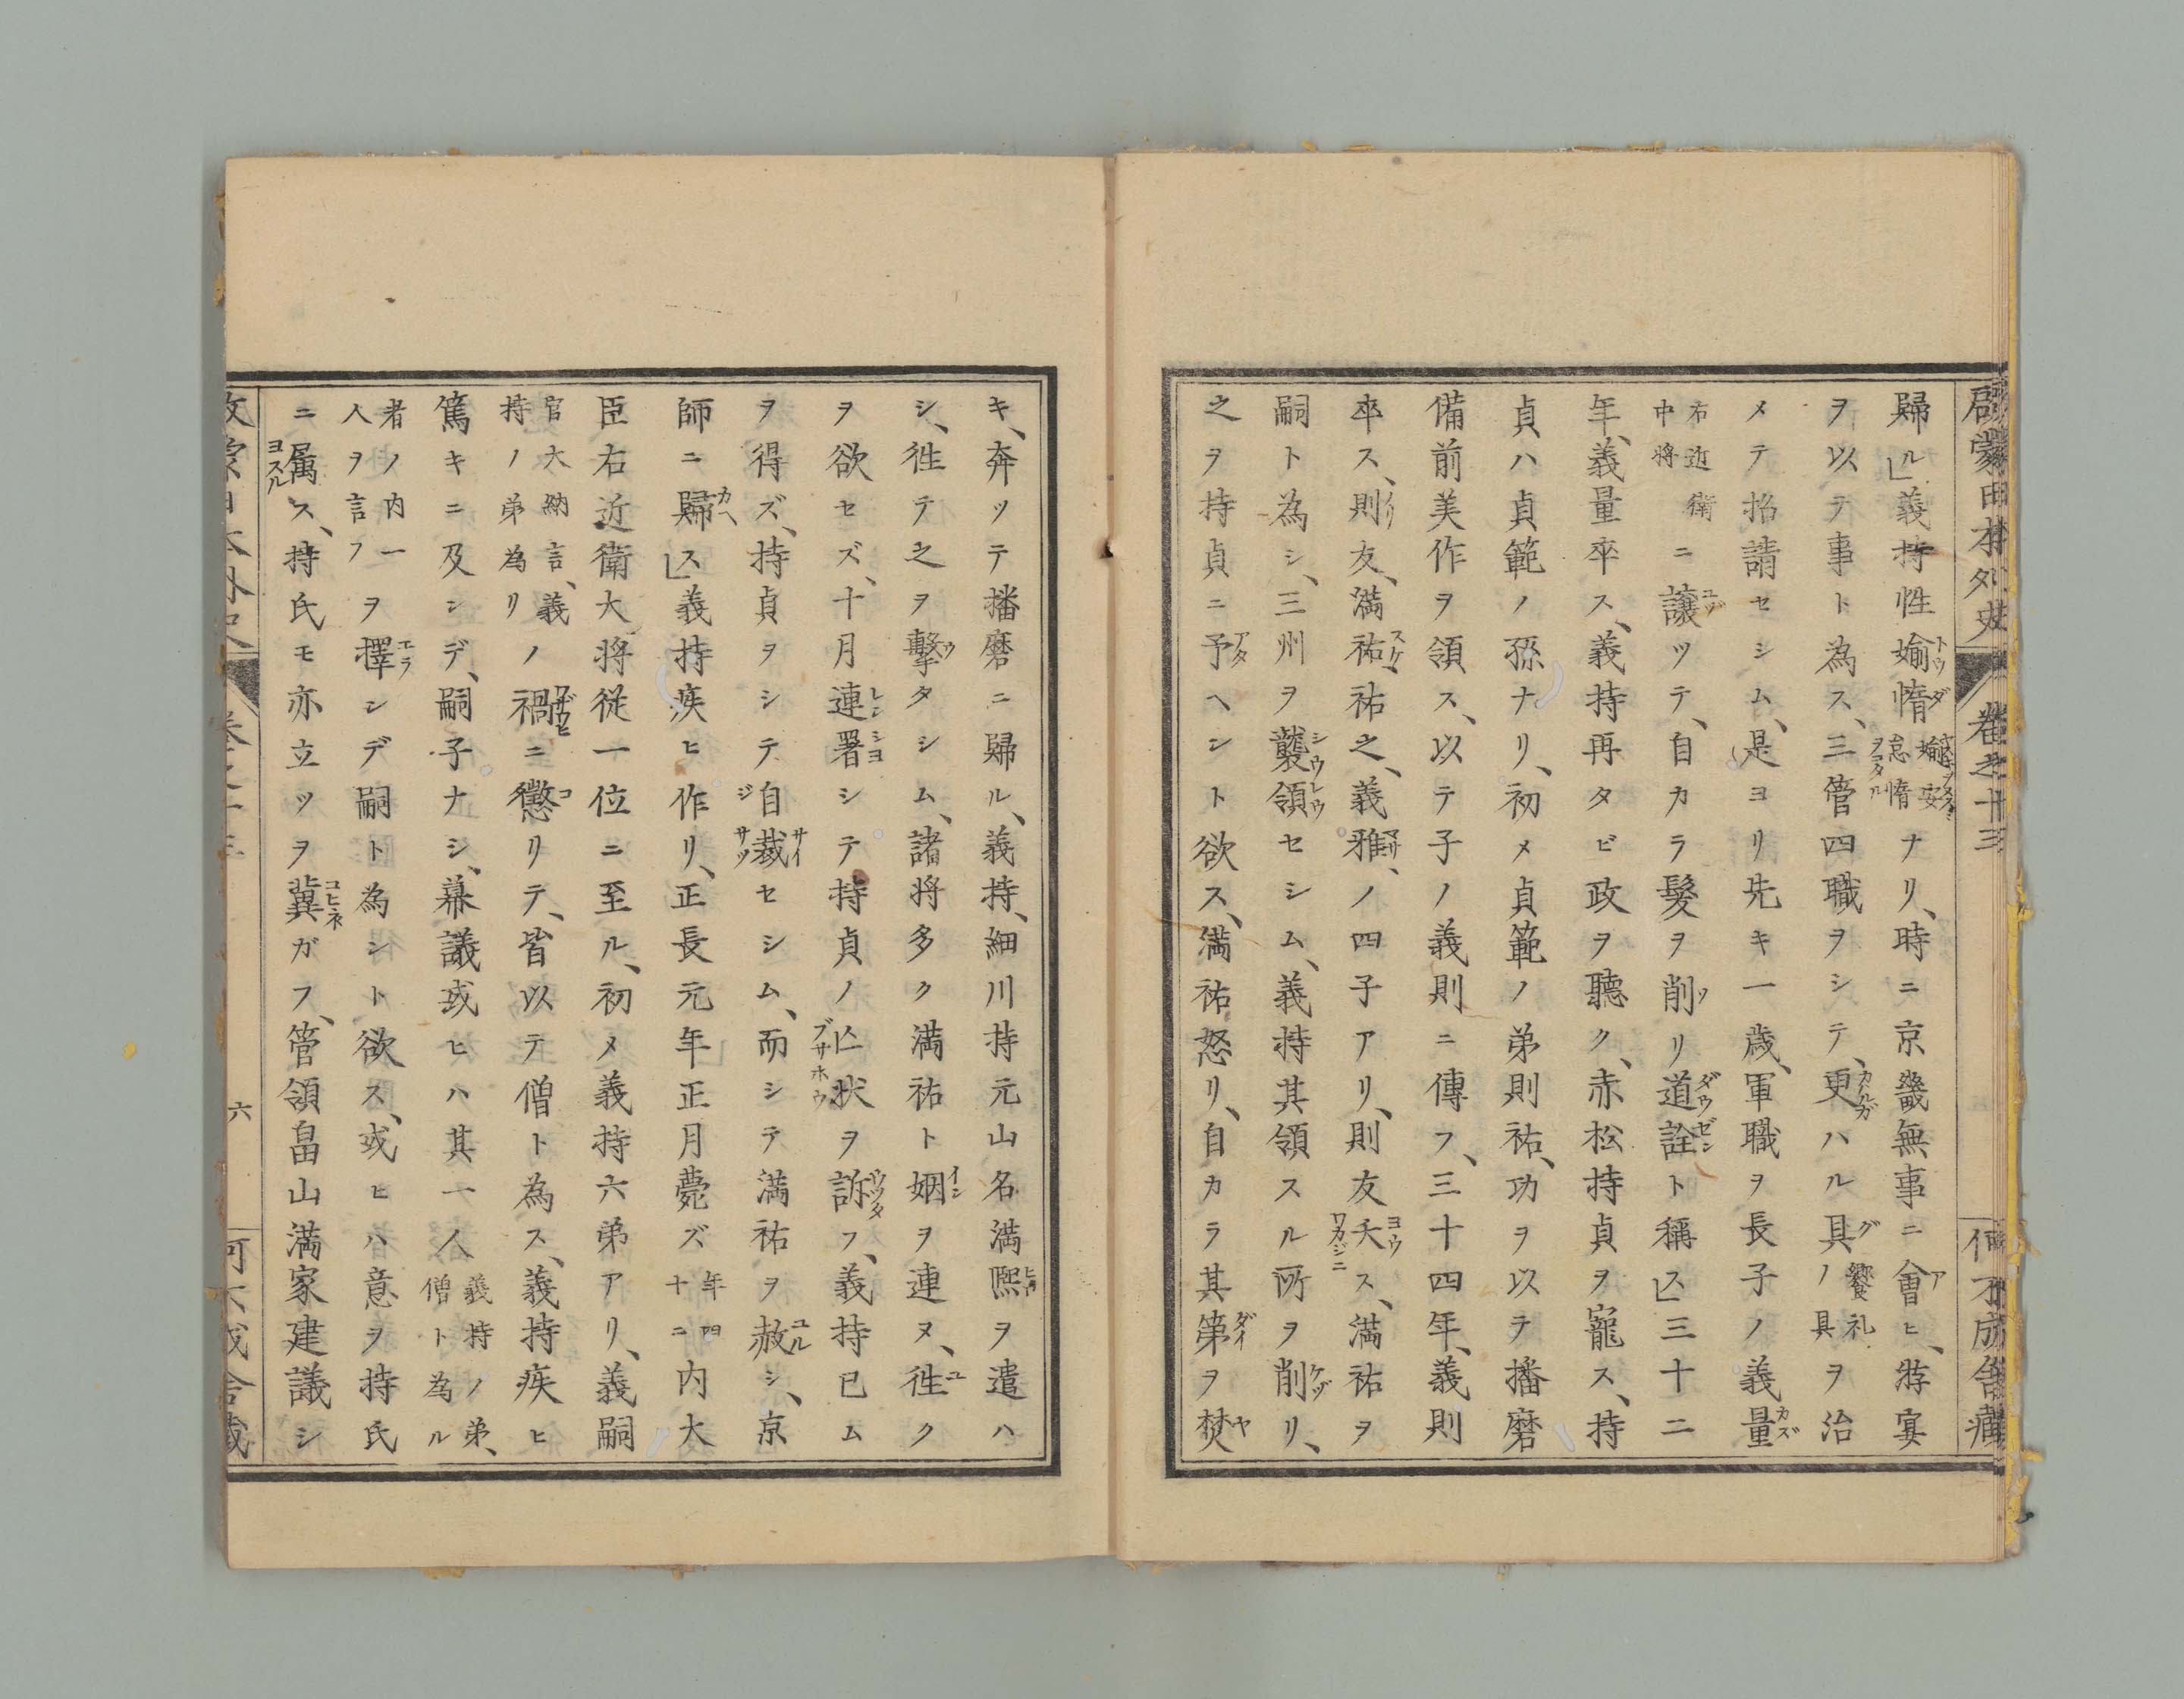 啓蒙日本外史 卷之十三 何不成舎藏
歸ル」義持性媮惰媮安怠惰ナリ、時ニ京畿無事ニ會ヒ、游宴
ヲ以テ事ト為ス、三管四職ヲシテ、更ハル具饗礼ノ具ヲ治
メテ招請セシム、是ヨリ先キ一歳、軍職ヲ長子ノ義量
右近衛中将ニ讓ツテ、自カラ髮ヲ削リ道詮ト稱ス」三十二
年、義量卒ス、義持再タビ政ヲ聽ク、赤松持貞ヲ寵ス、持
貞ハ貞範ノ孫ナリ、初メ貞範ノ弟則祐、功ヲ以テ播磨
備前美作ヲ領ス、以テ子ノ義則ニ傳フ、三十四年、義則
卒ス、則友、満祐、祐之、義雅、ノ四子アリ、則友夭ス、満祐ヲ
嗣ト為シ、三州ヲ襲領セシム、義持其領スル所ヲ削リ、
之ヲ持貞ニ予ヘント欲ス、満祐怒リ、自カラ其第ヲ焚
キ、奔ツテ播磨ニ歸ル、義持、細川持元山名満熈ヲ遣ハ
シ、徃テ之ヲ擊タシム、諸将多ク満祐ト姻ヲ連ヌ、徃ク
ヲ欲セズ、十月連署シテ持貞ノ亾状ヲ訴フ、義持已ム
ヲ得ズ、持貞ヲシテ自裁セシム、而シテ満祐ヲ赦シ、京
師ニ歸ス」義持疾ヒ作リ、正長元年正月薨ズ年四十ニ内大
臣右近衛大将従一位ニ至ル、初メ義持六弟アリ、義嗣
官大納言、義持ノ弟為リノ禍ニ懲リテ、皆以テ僧ト為ス、義持疾ヒ
篤キニ及ンデ、嗣子ナシ、幕議或ヒハ其一人義持ノ弟、僧ト為ル
者ノ内一人ヲ言フヲ擇ンデ嗣ト為シト欲ス、或ヒハ意ヲ持氏
ニ属ス、持氏モ亦立ツヲ冀ガフ、管領畠山満家建議シ
卷之十三 六